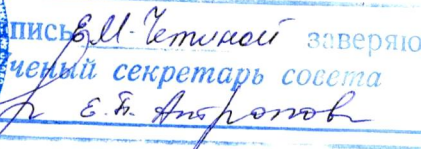 пись Е.М. Четиной заверяю
ченый секретарь совета
Е.П. Антропов